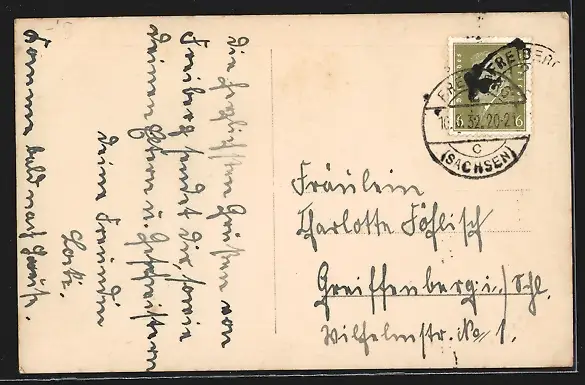 Die herzlichsten Grüßen von
Freiberg sendet dir, sowie
deinen Eltern u. Geschwistern
deine Freundin
Lotte.
Komme bald nach Hause.
FREIBERG
(SACHSEN)
c
6 6
Fräulein
Charlotte Föhlisch
Greiffenberg i./Schl.
Wilhelmstr. No 1.